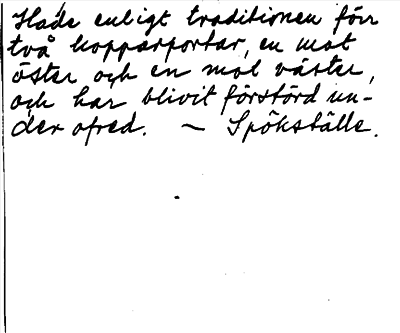 Hade enligt traditionen förr
två kopparportar, en mot
öster och en mot väster,
och har blivit förstörd un-
der ofred. — Spökställe.